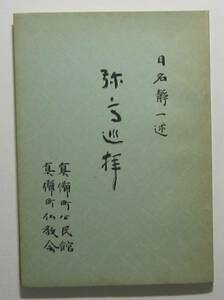 日名静一述
弥高巡拝
真備町公民館
真備町仏教会